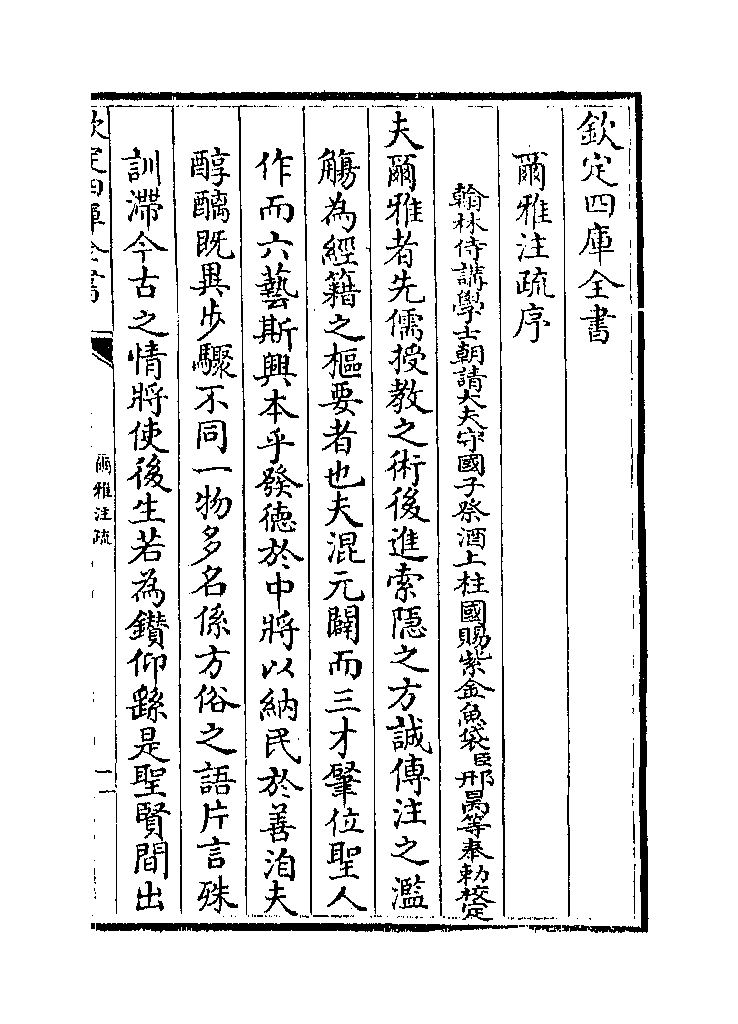 欽定四庫全書
爾雅注疏序
翰林侍講學士朝請大夫守國子祭酒上柱國賜紫金魚袋臣邢昺等奉勅校定
夫爾雅者先儒授教之術後進索隠之方誠傳注之濫
觴為經籍之樞要者也夫混元闢而三才肇位聖人
作而六藝斯興本乎發徳於中將以納民於善洎夫
醇醨既異步驟不同一物多名係方俗之語片言殊
訓滯今古之情將使後生若為鑽仰繇是聖賢間出
欽定四庫全書
爾雅注疏
一